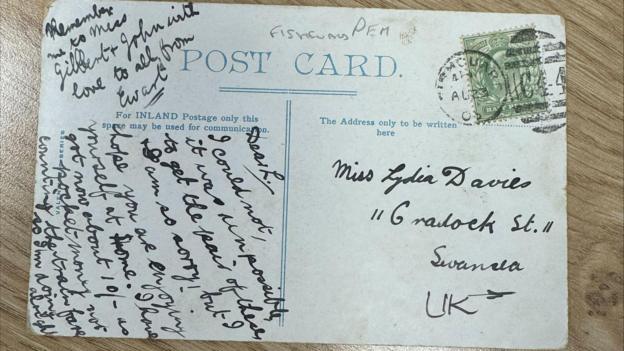 Remember
me to Miss
Gilbert & John with
love to all from
Ewart
FISHGUARD PEM
POST CARD.
For INLAND Postage only this
space may be used for communication.
The Address only to be written
here
Dear L.
I could not,
it was impossible,
to get the pair of these
I am so sorry! but I
hope you are enjoying
yourself at home. I have
got now about 10/- as
pocket money not
counting the train fare
so I'm doing
alright
Miss Lydia Davies
"Cradock St."
Swansea
UK
FISHGUARD
AU 23